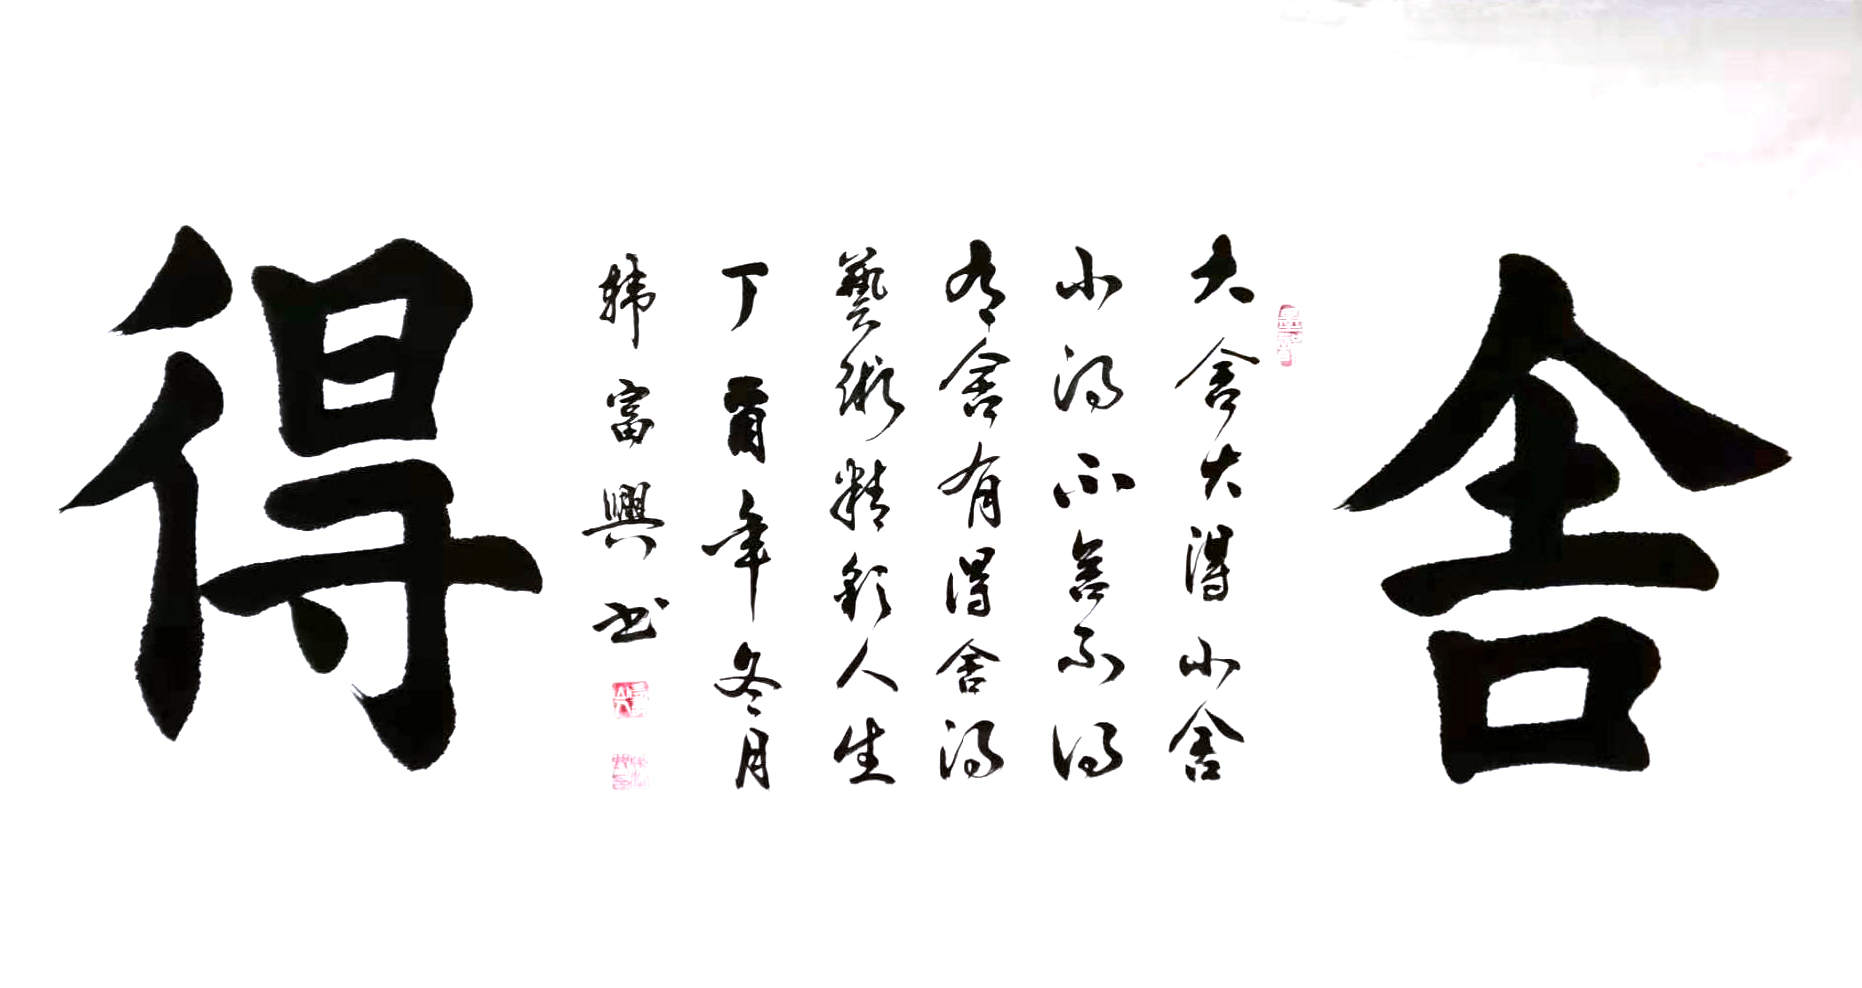 舍
大舍大得小舍
小得不舍不得
有舍有得舍得
藝術精彩人生
丁酉年冬月
韩富興书
得